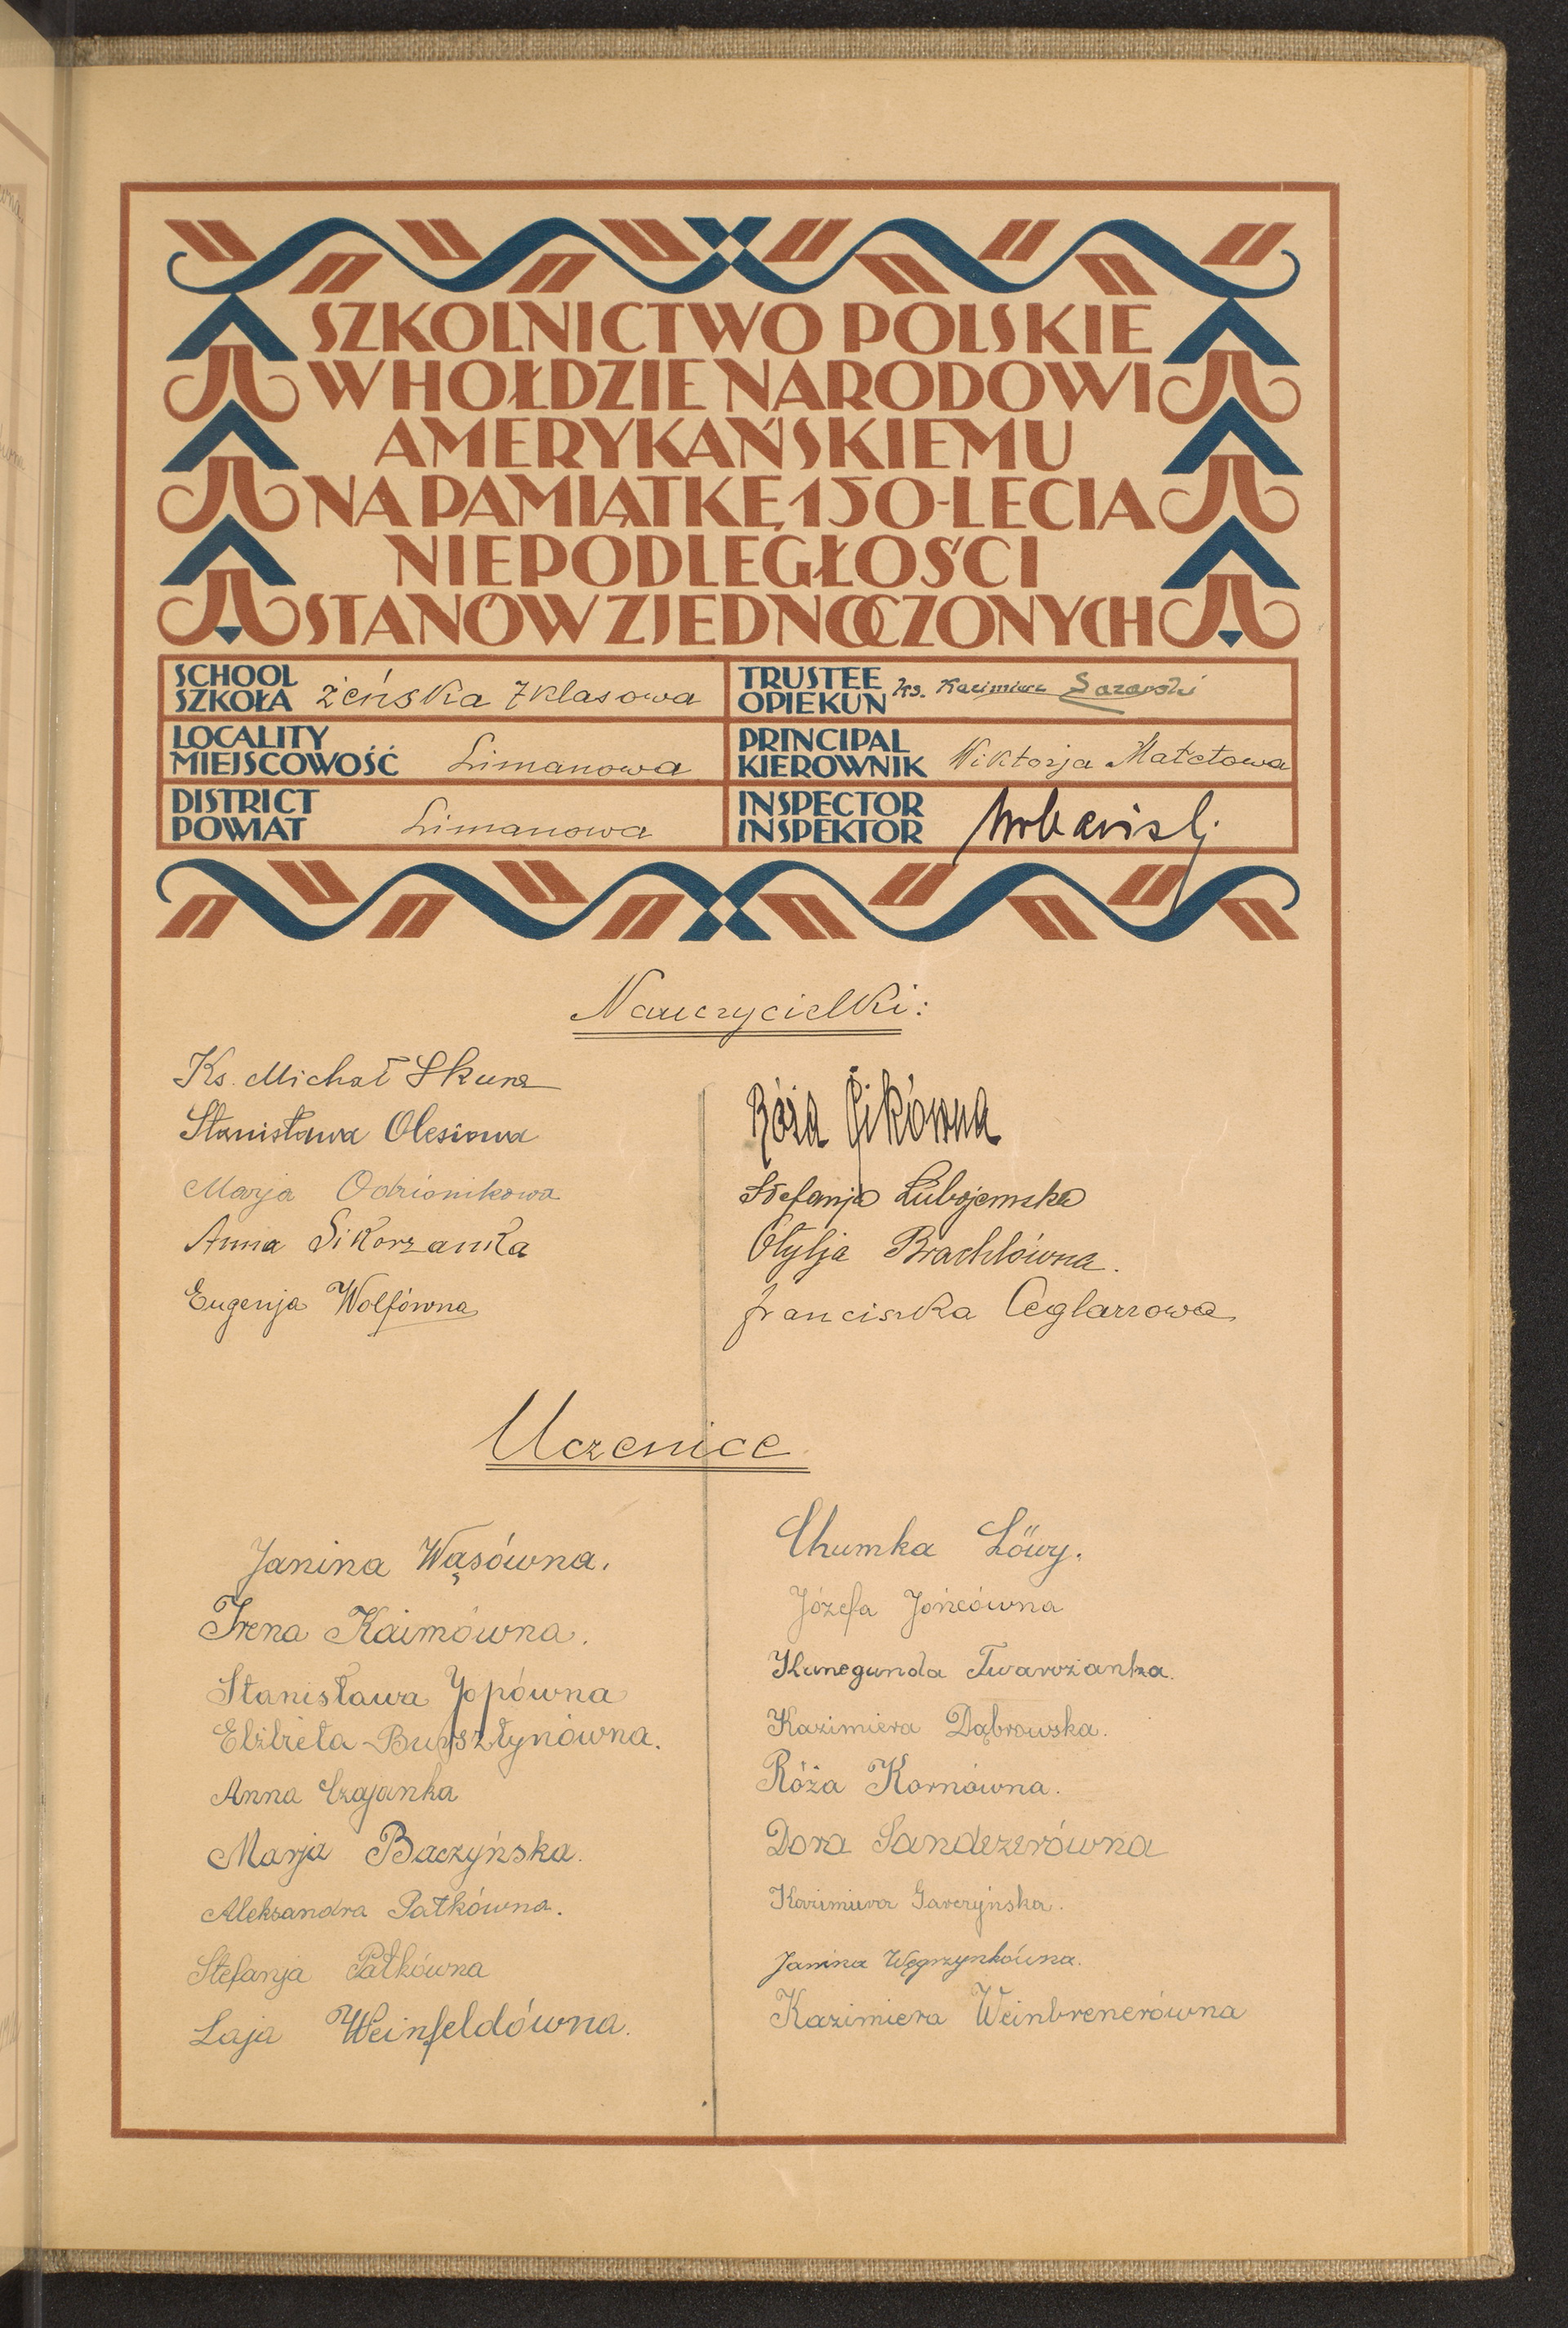 SZKOLNICTWO POLSKIE
W HOŁDZIE NARODOWI
AMERYKAŃSKIEMU
NA PAMIĄTKĘ 150-LECIA
NIEPODLEGŁOŚCI
STANÓW ZJEDNOCZONYCH
SCHOOL
SZKOŁA żeńska 7klasowa
TRUSTEE
OPIEKUN ks. Kazimierz
LOCALITY
MIEJSCOWOŚĆ Limanowa
PRINCIPAL
KIEROWNIK Wiktorja
DISTRICT
POWIAT Limanowa
INSPECTOR
INSPEKTOR
Nauczycielki:
Ks. Michał Skura
Stanisława Olesiowa
Marja Odzionikowa
Anna Sikorzanka
Eugenja Wolfówna
Róża
Stefanja Lubojemska
Otylja Brachlówna.
Franciszka Ceglarzowa
Uczenice
Janina Wąsówna.
Irena Kaimówna.
Stanisława Jopówna
Elżbieta Bursztynówna.
Anna Czajanka
Marja Baczyńska.
Aleksandra Pałkówna.
Stefanja Pałkówna
Laja Weinfeldówna.
Chumka Löwy.
Józefa Jońcówna
Kunegunda Twarożanka.
Kazimiera Dąbrowska.
Róża Kornówna.
Dora Sandezerówna
Kazimiera Garczyńska.
Janina Węgrzynkówna.
Kazimiera Weinbrenerówna